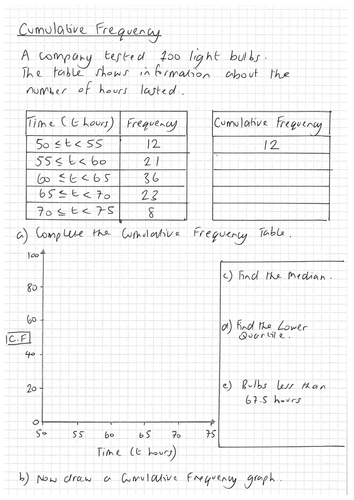 Cumulative Frequency
A company tested 100 light bulbs.
The table shows information about the
number of hours lasted.
Time (t hours) Frequency Cumulative Frequency
50 ≤ t < 55 12 12
55 ≤ t < 60 21
60 ≤ t < 65 36
65 ≤ t < 70 23
70 ≤ t < 75 8
a) Complete the Cumulative Frequency Table.
100
80
60
C.F
40
20
0
50 55 60 65 70 75
Time (t hours)
c) Find the Median.
d) Find the Lower
Quartile.
e) Bulbs less than
67.5 hours
b) Now draw a Cumulative Frequency graph.